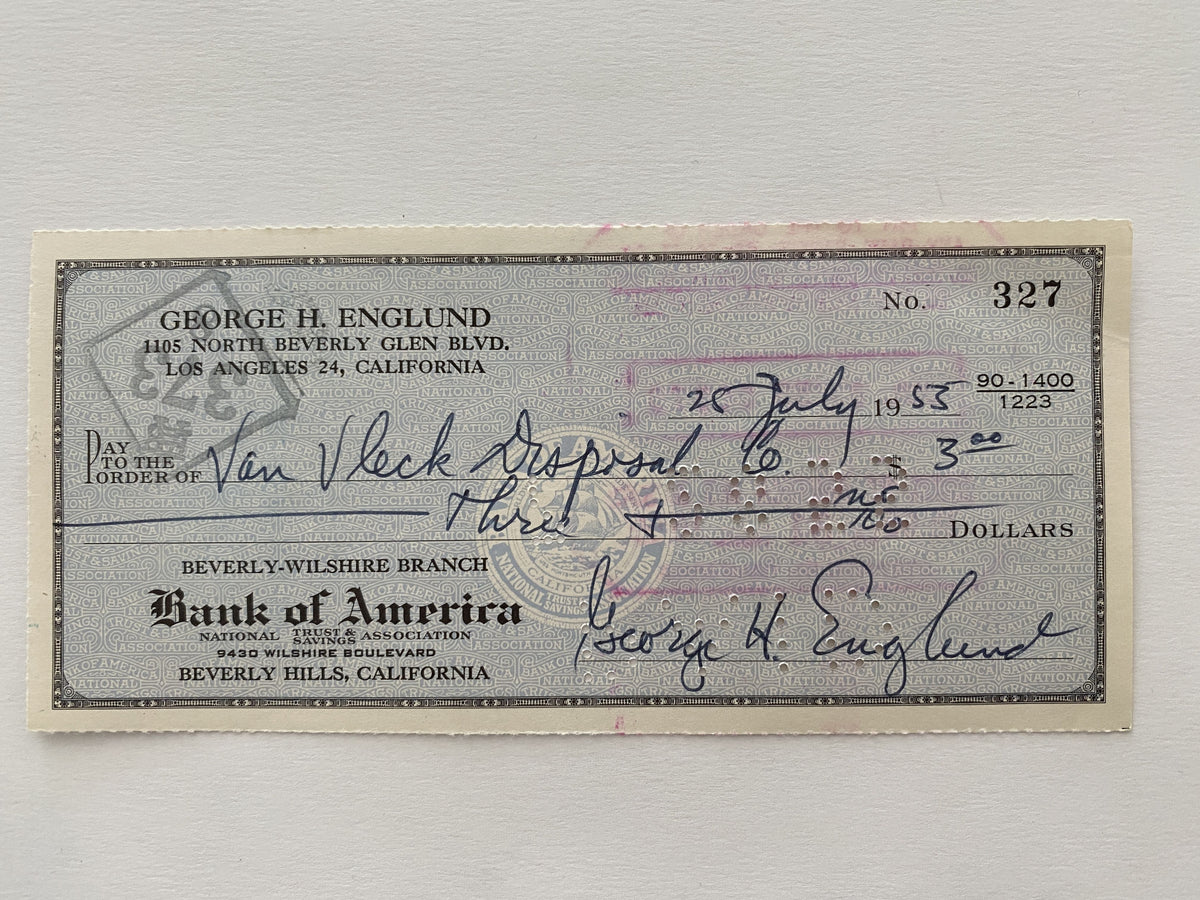 No. 327
GEORGE H. ENGLUND
1105 NORTH BEVERLY GLEN BLVD.
LOS ANGELES 24, CALIFORNIA
25 July 1955
90-1400
1223
PAY TO THE ORDER OF Van Vleck Disposal Co. $ 3 00
Three + no/100 DOLLARS
BEVERLY-WILSHIRE BRANCH
Bank of America
NATIONAL TRUST & SAVINGS ASSOCIATION
9430 WILSHIRE BOULEVARD
BEVERLY HILLS, CALIFORNIA
George H. Englund
373